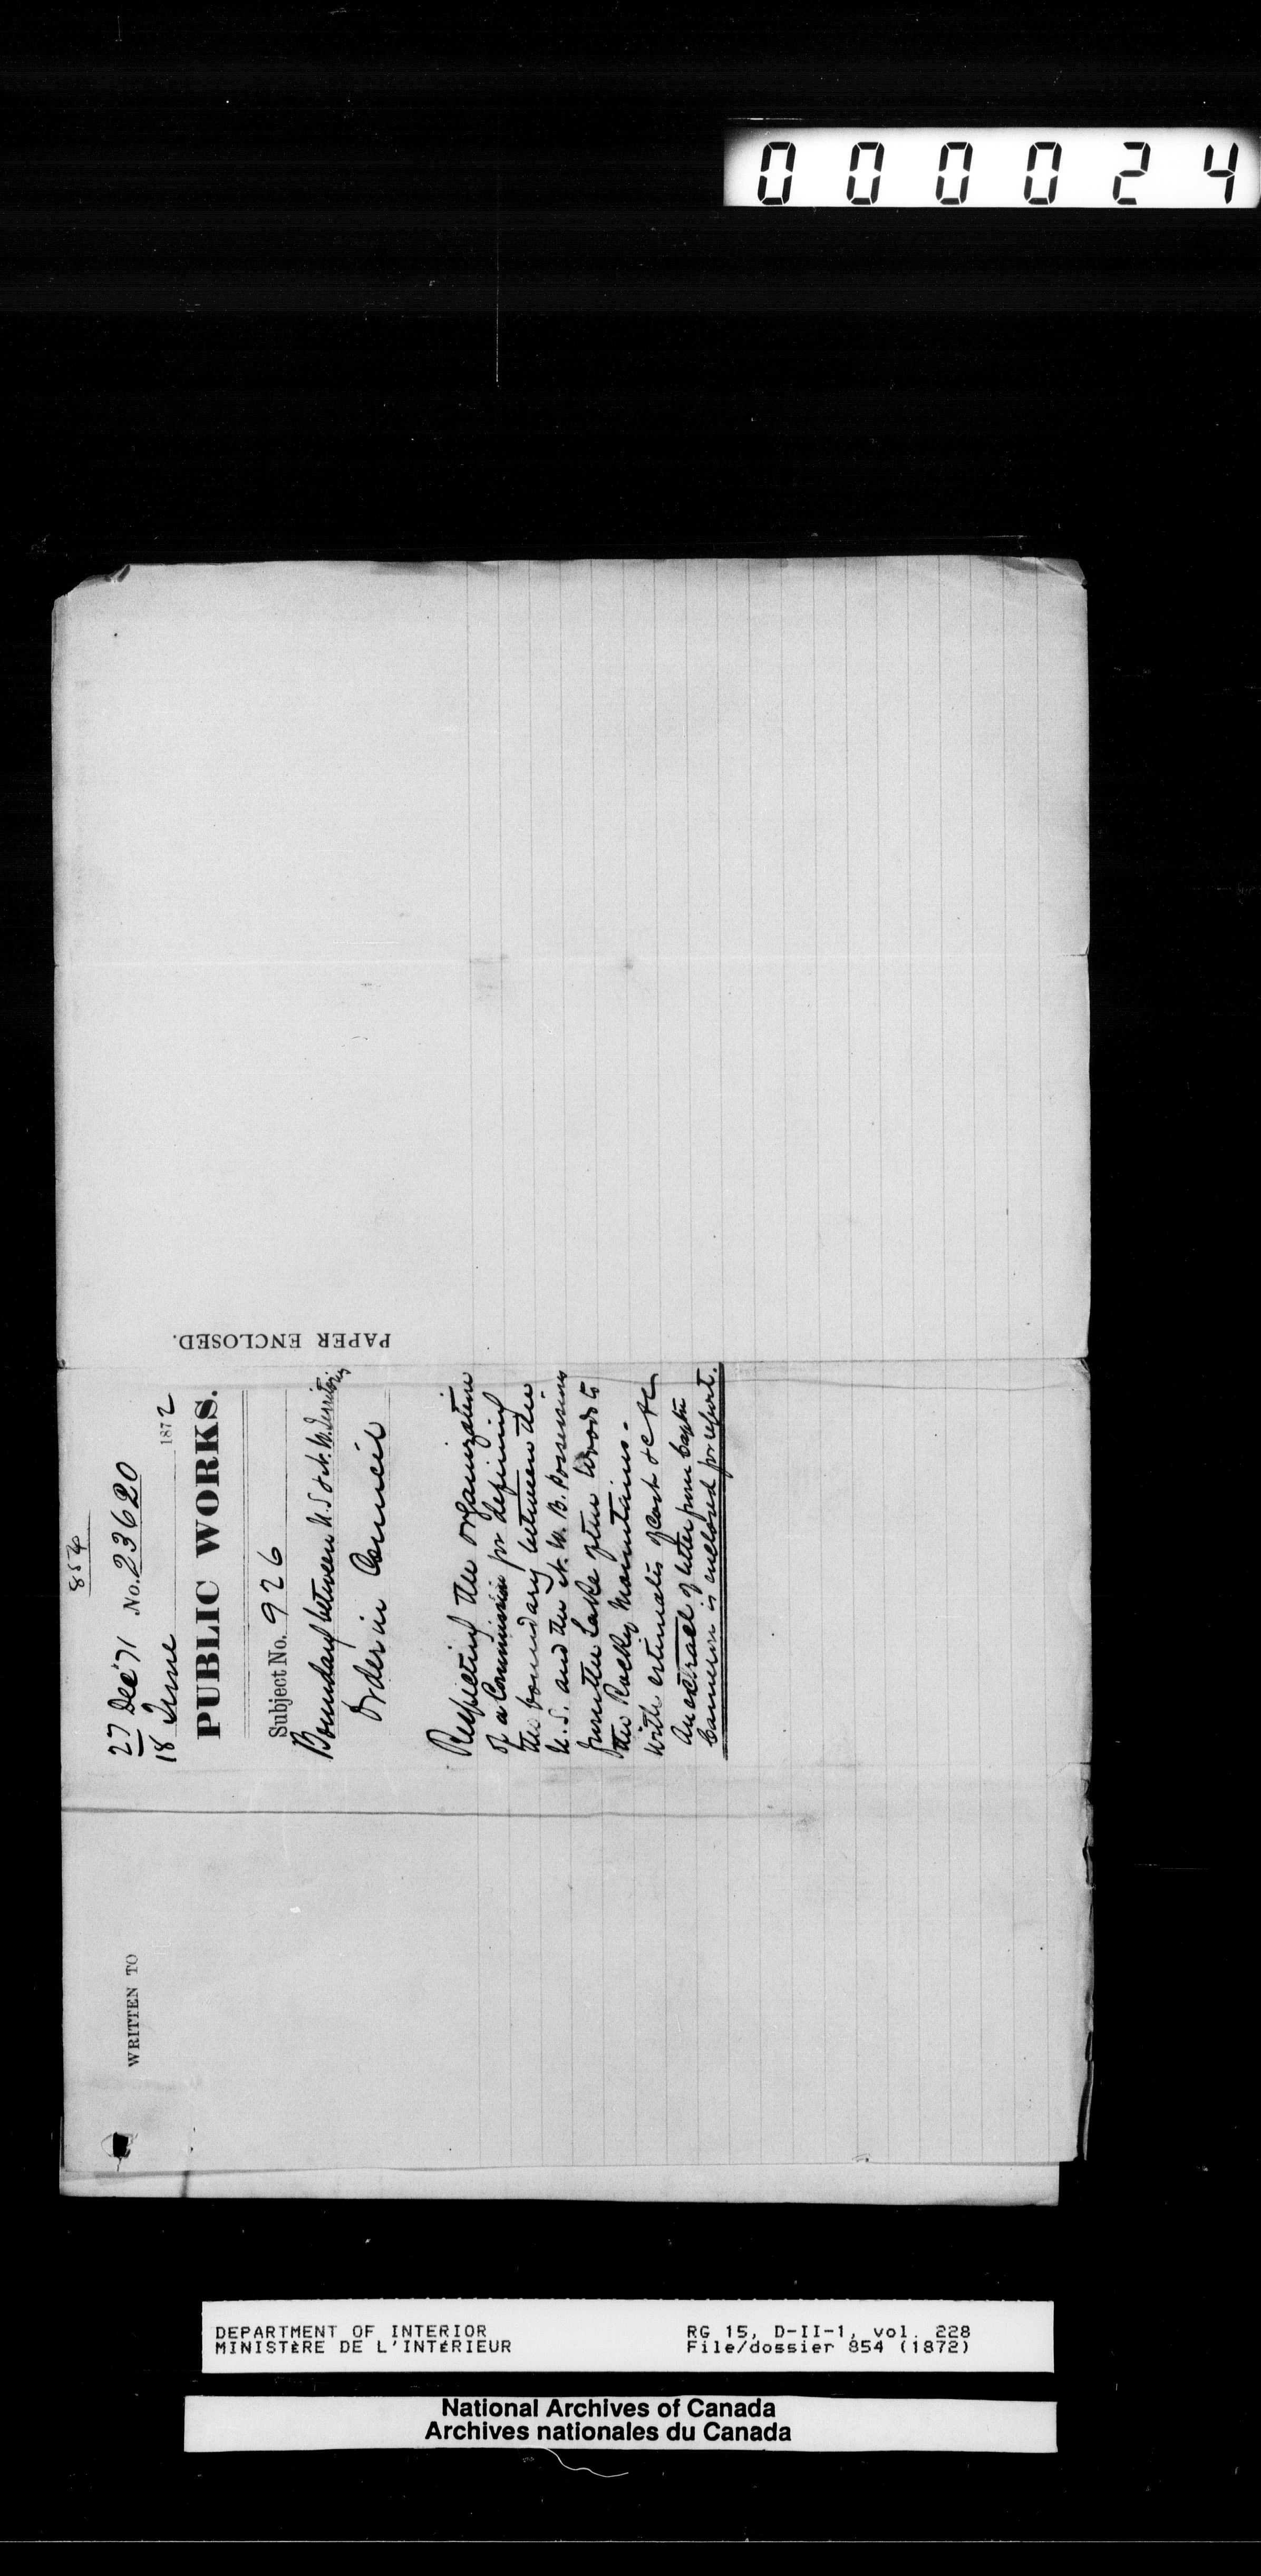 000024
854
27 Dec '71 No. 23620
18 June 1872
PUBLIC WORKS.
Subject No. 926
Boundary between U.S & N.W. Territories
Order in Council
Respecting the organization
of a Commission for defining
the boundary between the
U.S. and the N.W.B. Possessions
from the Lake of the Woods to
the Rocky Mountains.
With estimates of cost &c &c
An extract of letter from Captn
Cameron is enclosed for report.
PAPER ENCLOSED.
WRITTEN TO
DEPARTMENT OF INTERIOR
MINISTÈRE DE L'INTÉRIEUR
RG 15, D-II-1, vol. 228
File/dossier 854 (1872)
National Archives of Canada
Archives nationales du Canada